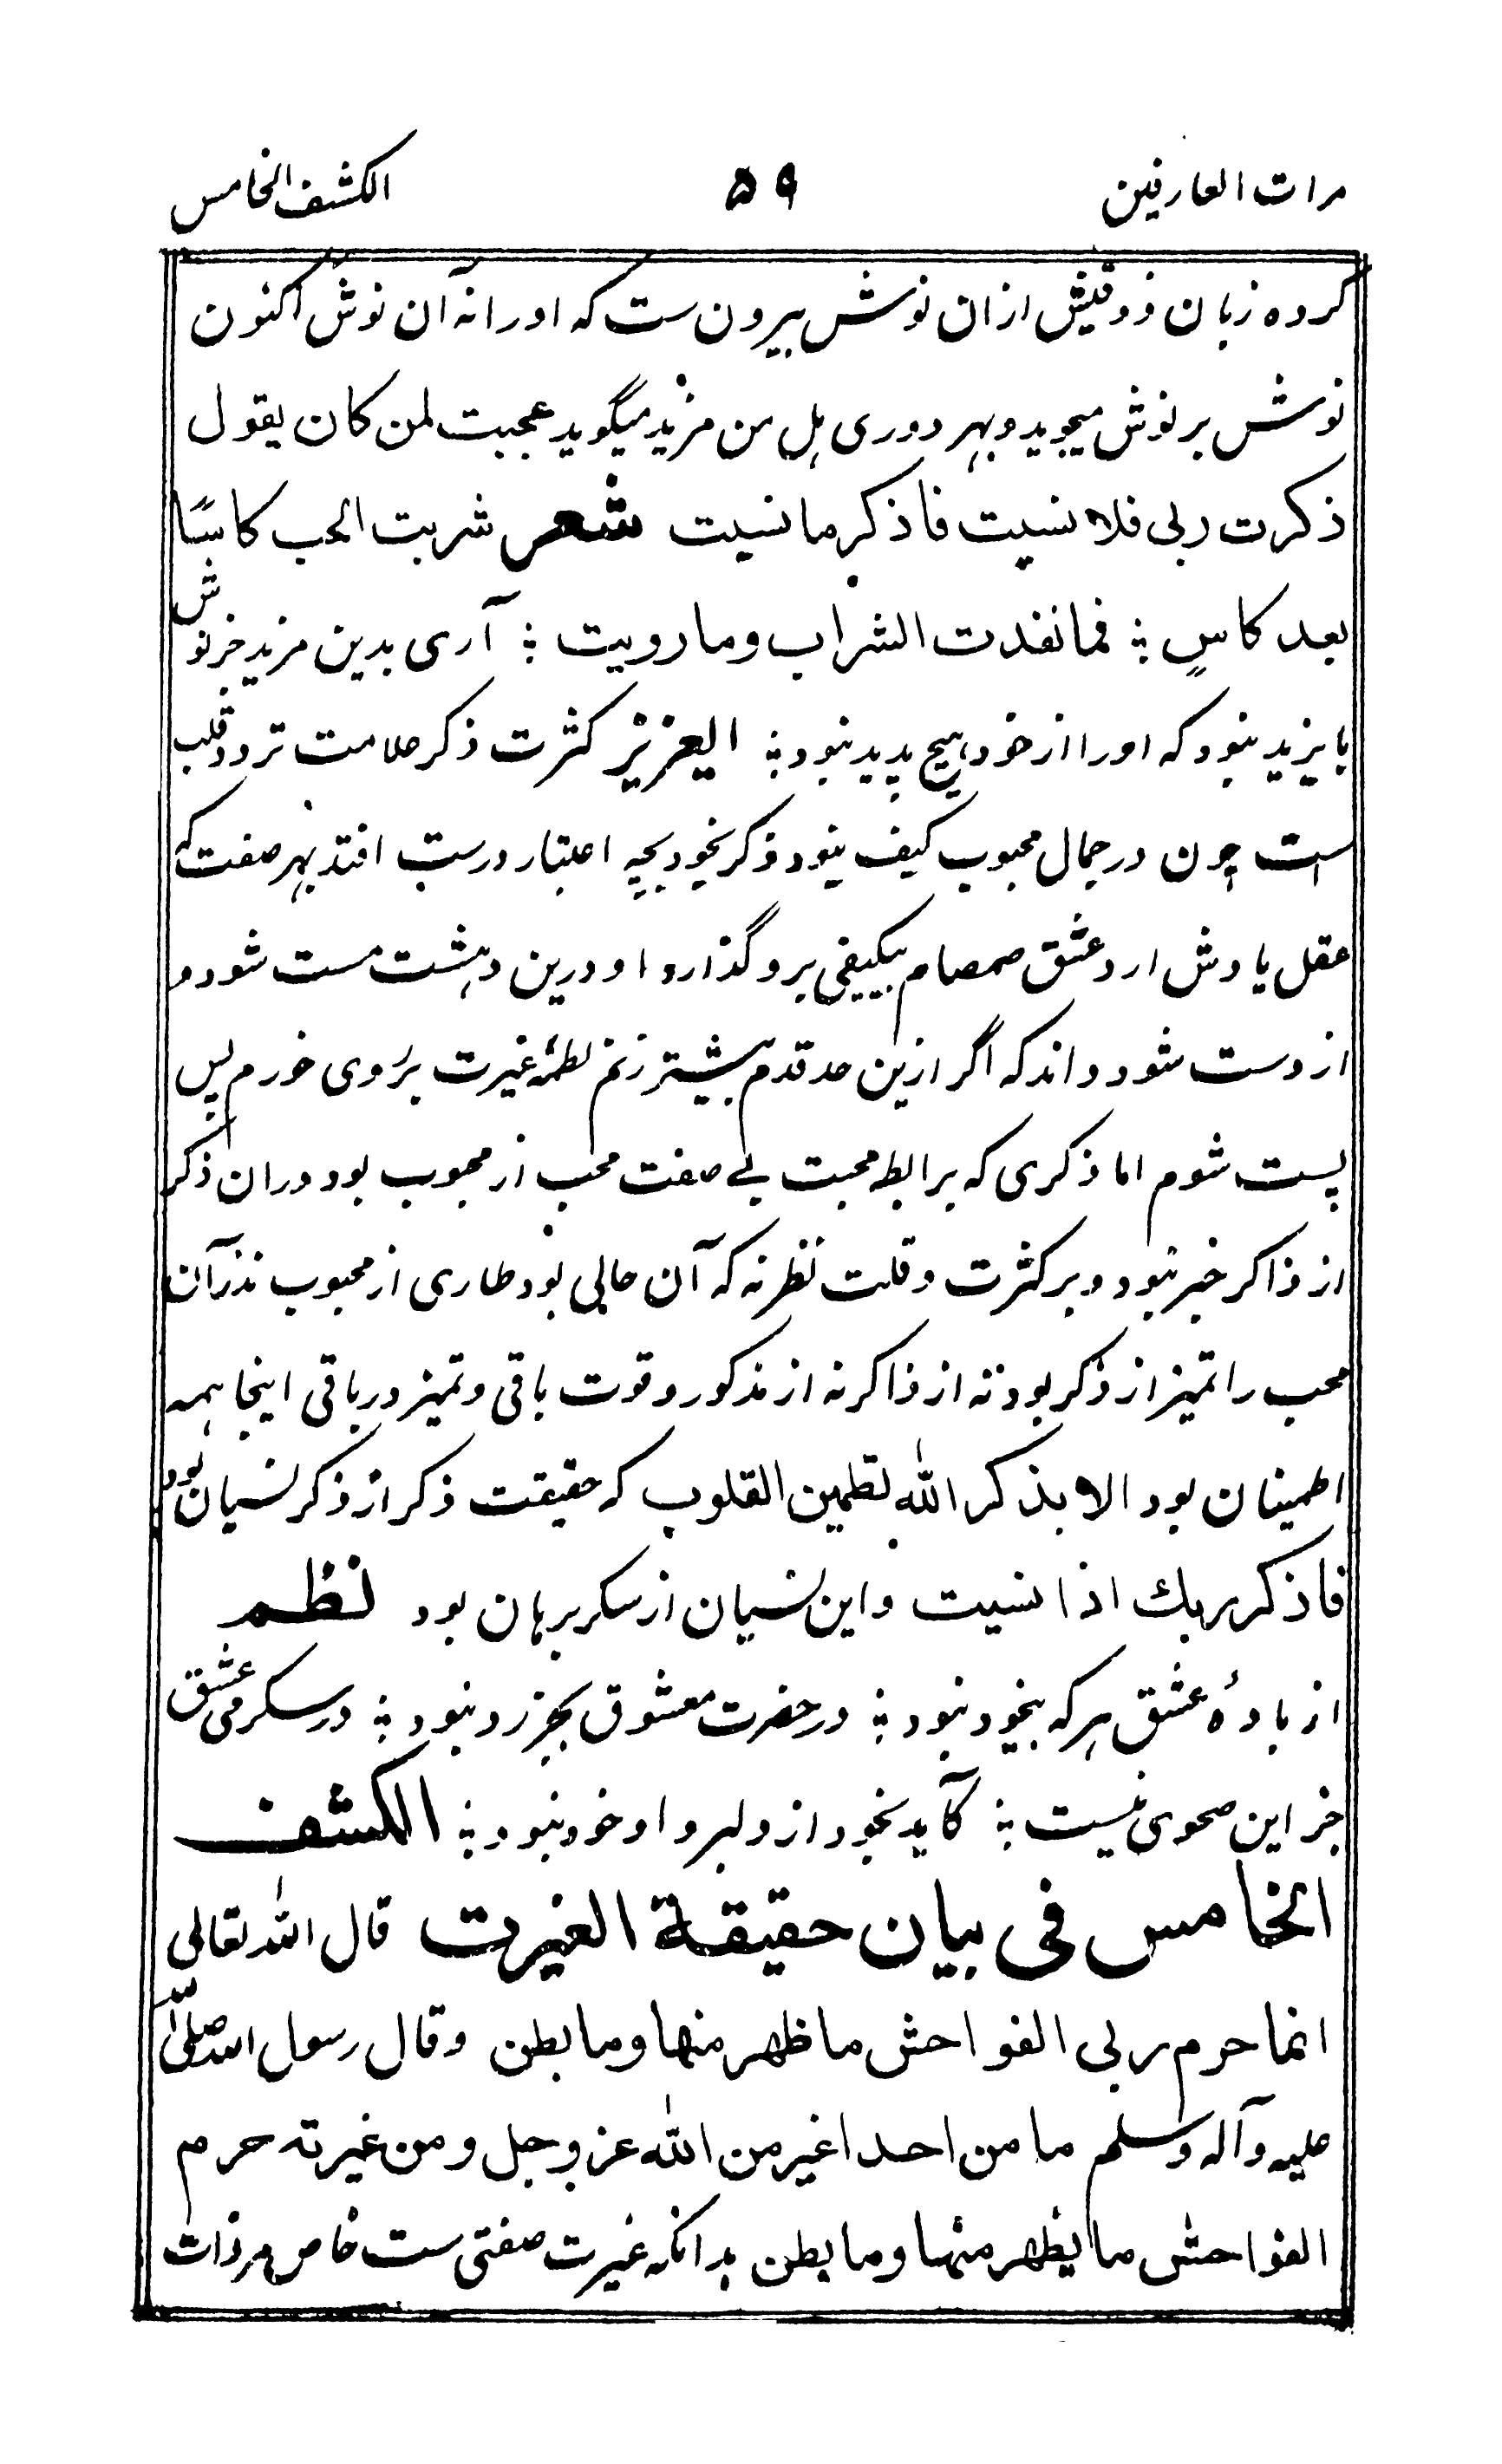 مرات العارفین ۵۹ الکشف الخامس
کروه زبان ذوقیش ازان نوش بیرون ست که اورانه آن نوش اکنون
نوش بر نوش میجوید و بهر دوری هل من مزید میگوید عجبت لمن کان یقول
ذکرت ربی فلا نسیت فاذکر ما نسیت شعر شربت الحب کاسًا
بعد کاسٍ ؛ فما نفدت الشراب وما رویت ؛ آری بدین مزید جز نوش
بایزید نبود که اورا از خود هیچ پدید نبود ؛ العزیز کثرت ذکر علامت تردد قلب
است چون در جمال محبوب کیف نبود ذکر بخود بچه اعتبار درست افتد بهر صفت که
عقل یادش ارد عشق صمصام بیکیفی برو گذارد او درین دهشت مست شود و
از دست شود داند که اگر ازین حد قدم بیشتر زنم لطمهٔ غیرت بر روی خورم پس
پست شوم اما ذکری که برابطه محبت بے صفت محب از محبوب بود دران ذکر
از ذاکر خبر نبود و بر کثرت و قلت نظر نه که آن حالی بود طاری از محبوب نذرآن
محب را تمیز از ذکر بود نه از ذاکر نه از مذکور و قوت باقی و تمیز در باقی اینجا همه
اطمینان بود الا بذکر الله تطمین القلوب که حقیقت ذکر از ذکر نسیان بود
فاذکر ربك اذا نسیت و این نسیان از سکر برهان بود نظم
از بادهٔ عشق هر که بیخود نبود ؛ در حضرت معشوق بجز رد نبود ؛ در سکر می عشق
جز این صحوی نیست ؛ کآید بخود از دلبر و او خود نبود ؛ الکشف
الخامس فی بیان حقیقة الغیرت قال الله تعالی
انما حرم ربی الفواحش ما ظهر منها وما بطن وقال رسول الله صلی الله
علیه وآله وسلم ما من احد اغیر من الله عز و جل و من غیرته حرم
الفواحش ما یظهر منها وما بطن بدانکه غیرت صفتی ست خاص مر ذات